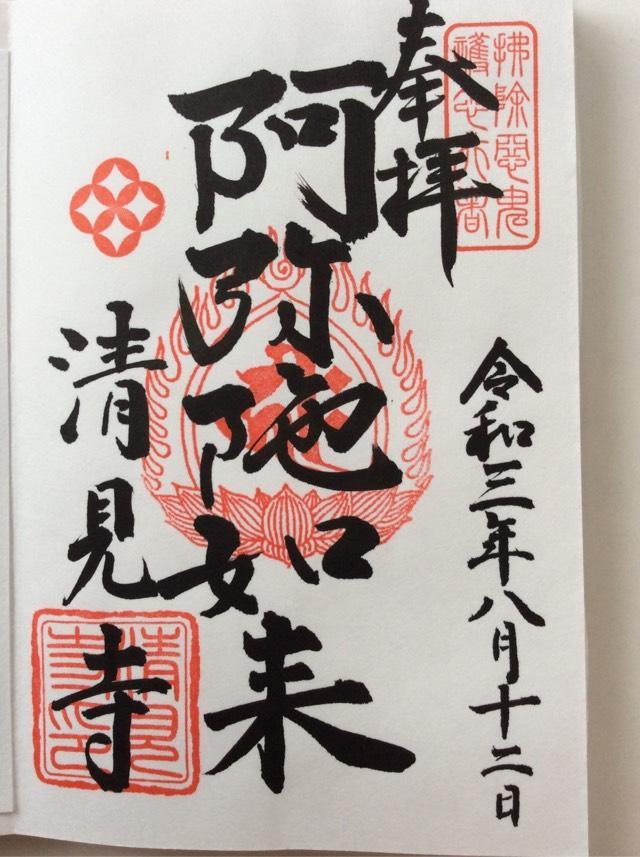 奉拝
拂除惡鬼
護念行者
令和三年八月十二日
阿弥陀如来
清見寺
清見
寺印